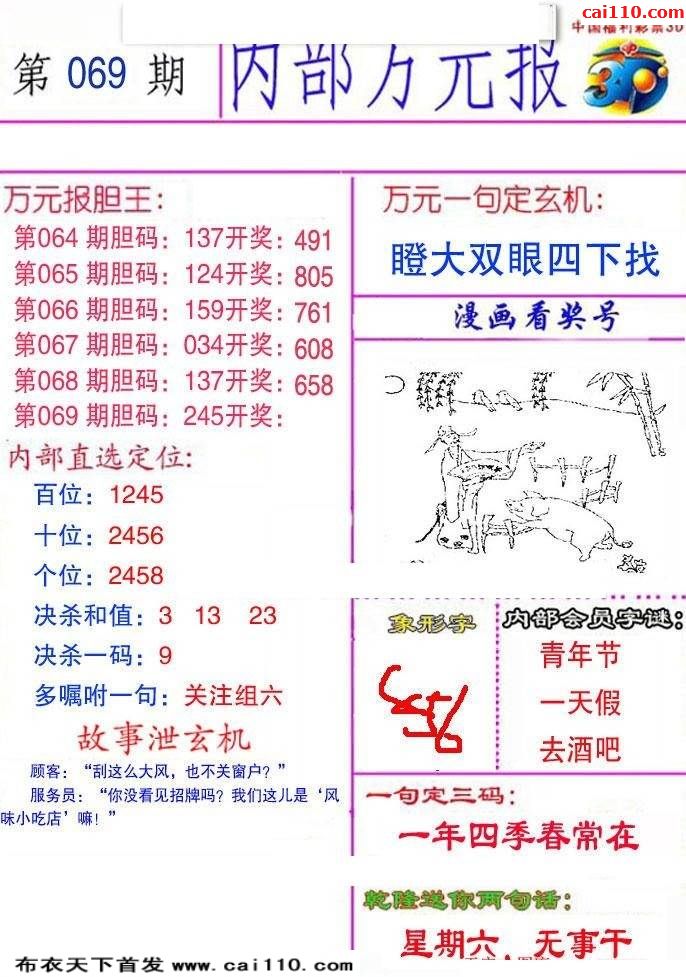 cai110.com
中国福利彩票3D
第 069 期
内部万元报
3D
万元报胆王：
第064 期胆码：137开奖：491
第065 期胆码：124开奖：805
第066 期胆码：159开奖：761
第067 期胆码：034开奖：608
第068 期胆码：137开奖：658
第069 期胆码：245开奖：
内部直选定位:
百位：1245
十位：2456
个位：2458
决杀和值：3 13 23
决杀一码：9
多嘱咐一句：关注组六
故事泄玄机
顾客：“刮这么大风，也不关窗户？”
服务员：“你没看见招牌吗？我们这儿是‘风
味小吃店’嘛！”
万元一句定玄机：
瞪大双眼四下找
漫画看奖号
象形字
内部会员字谜：
青年节
一天假
去酒吧
一句定三码：
一年四季春常在
乾隆送你两句话：
星期六，无事干
布衣天下首发 www.cai110.com